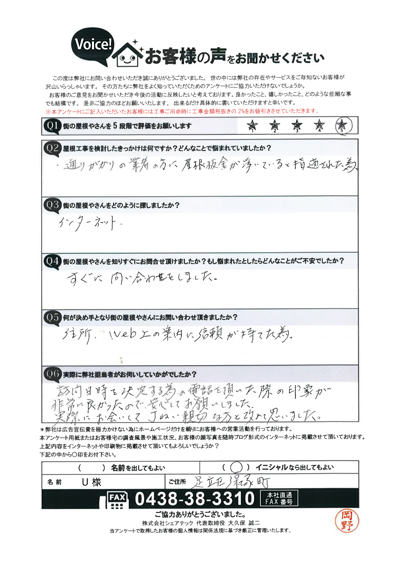 Voice!
お客様の声をお聞かせください
この度は弊社にお問い合わせいただき誠にありがとうございました。世の中には弊社の存在やサービスをご存知ないお客様が
沢山いらっしゃいます。その方たちに弊社をよく知っていただくためのアンケートにご協力いただけないでしょうか。
お客様のご意見をお聞かせいただき今後の活動に反映したいと考えております。良かったこと、嬉しかったこと、どのような些細な事
でも結構です。是非ご協力のほどお願いいたします。出来るだけ具体的に書いていただけますと幸いです。
※本アンケートにご記入いただいたお客様には工事ご用命時に工事金額税抜きの2%をお値引きさせていただきます。
Q1 街の屋根やさんを5段階で評価をお願いします ★ ★ ★ ★ ★
Q2 屋根工事を検討したきっかけは何ですか?どんなことで悩まれていましたか?
・通りがかりの業者の方に屋根板金が浮いていると指摘された為。
Q3 街の屋根やさんをどのように探しましたか?
インターネット
Q4 街の屋根やさんを知りすぐにお問合せ頂けましたか?もし悩まれたとしたらどんなことがご不安でしたか?
すぐに問い合わせをしました。
Q5 何が決め手となり街の屋根やさんにお問い合わせ頂けましたか?
住所、Web上の案内に信頼が持てた為。
Q6 実際に弊社担当者がお伺いしていかがでしたか?
訪問日時を決定する為の電話を頂いた際の印象が
非常に良かったので安心してお願いしました。
実際にお会いして、丁ねい親切な方と改めて思いました。
*弊社は広告宣伝費を極力かけない為にホームページだけを頼りにお客様への営業活動を行っております。
本アンケート用紙またはお客様宅の調査風景や施工状況、お客様の顔写真を随時ブログ形式のインターネットに掲載させて頂いております。
上記内容をインターネットや印刷物に掲載させて頂いてもよろしいでしょうか?
下記の中から○印をお付け下さい。
( ) 名前を出してもよい (○) イニシャルなら出してもよい
名前 U様 ご住所 足立区
FAX 0438-38-3310 本社直通 FAX番号
ご協力ありがとうございました。
株式会社シェアテック 代表取締役 大久保 誠二
当アンケートで取得したお客様の個人情報は関係法規に基づき厳正に管理いたします。
岡野